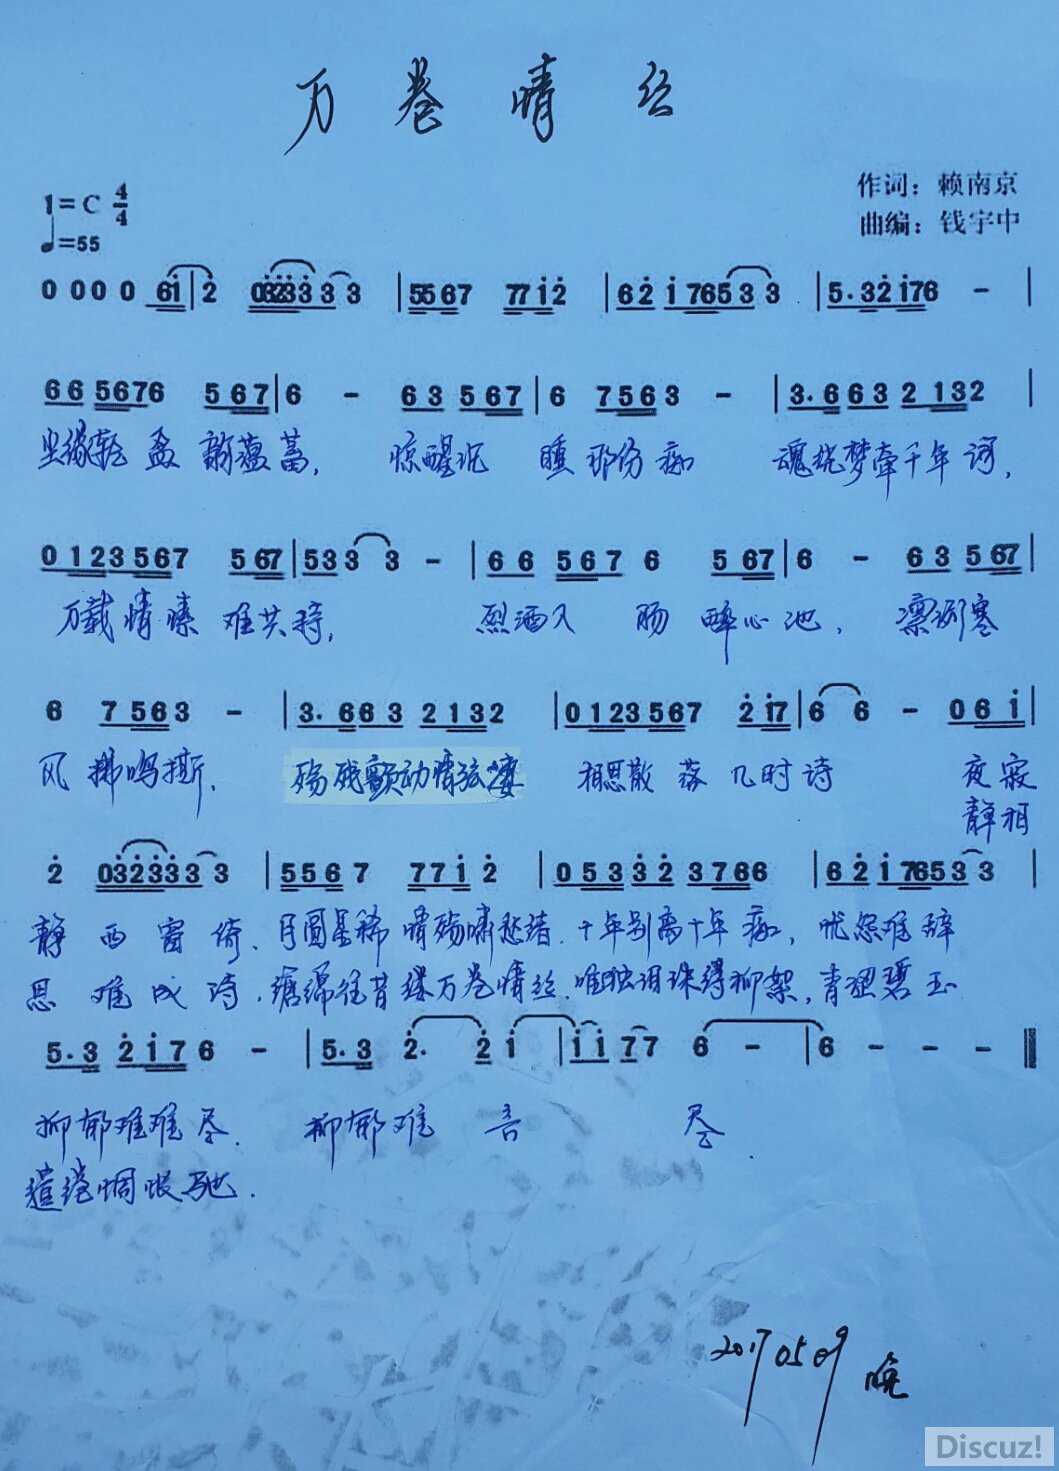 万卷情丝
1=C 4/4
作词：赖南京
♩=55
曲编：钱宇中
0 0 0 0 6i | 2 032333 3 3 | 5567 77i2 | 62 i7653 3 | 5.32i76 - |
66 5676 567 | 6 - 63 567 | 6 7563 - | 3.663 2132 |
尘缘轻盈 韵蕴蓄，惊醒沉睡那份痴 魂绕梦牵千年词，
0123567 567 | 533 3 - | 66 567 6 567 | 6 - 63 567 |
万载情愫难共持，烈酒入肠醉心池，凛冽寒
6 7563 - | 3.663 2132 | 0123567 2i7 | 6 6 - 06i |
风拂鸣撕．殇残颤动情弦凄 相思散落几时诗 夜寂
静相
2 032333 3 | 5567 77i2 | 05332 3766 | 62 i7653 3 |
静西窗倚．月圆星稀情殇啸愁绪．千年别离千年痴，忧怨难辞
思难成诗．缠绵往昔缕万卷情丝．唯独泪珠缚柳絮，青翅碧玉
5.3 2i76 - | 5.3 2. 2i | ii77 6 - | 6 - - -
抑郁难难尽．抑郁难言尽．
缱绻惆怅驰．
2017 05 09 晚
Discuz!